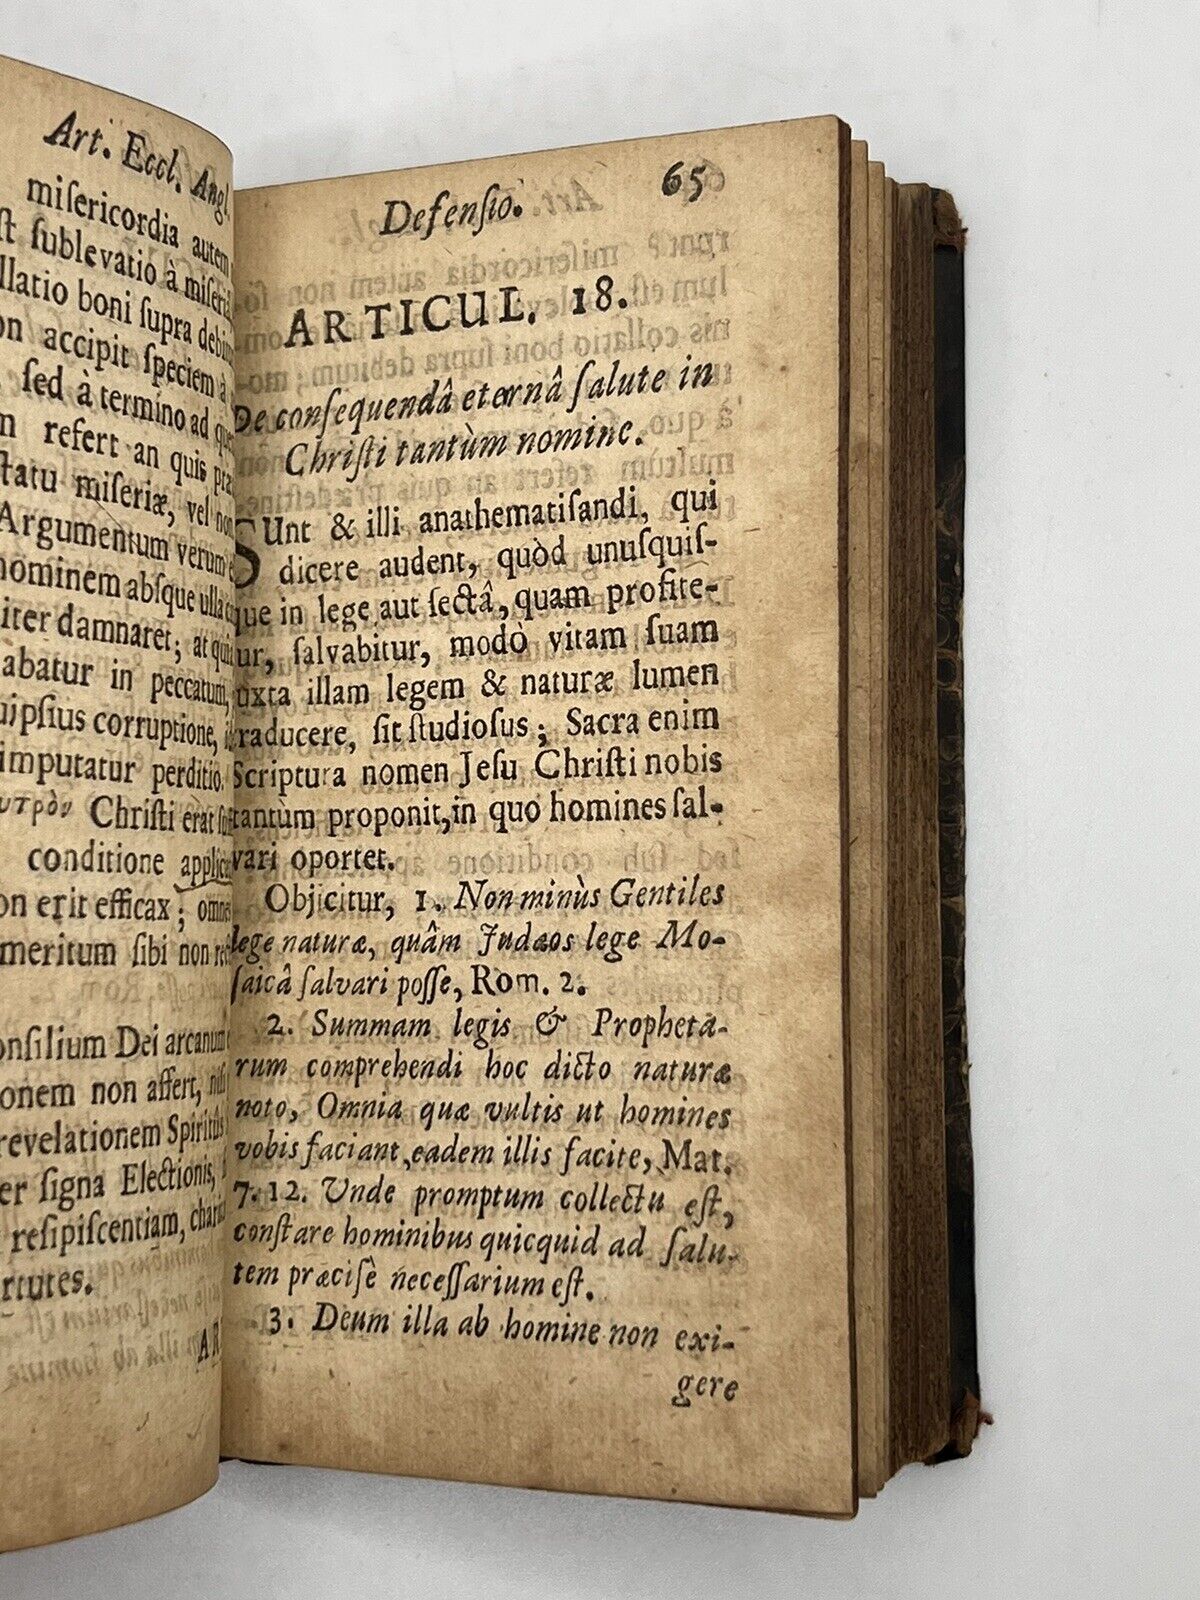 Art. Eccl. Angl.
misericordia autem
sublevatio à miseriâ
boni supra debitum
accipit speciem à
sed à termino ad
refert an quis
miseriæ, vel non
Argumentum verum
hominem absque ulla
damnaret; at
in peccatum,
corruptione,
imputatur perditio.
Christi erat
conditione
erit efficax;
meritum sibi non
Dei arcanum
non affert,
revelationem Spiritûs
signa Electionis,
resipiscentiam,
AR
Defensio. 65
ARTICUL. 18.
De consequendâ eternâ salute in
Christi tantùm nomine.
SUnt & illi anathematisandi, qui
dicere audent, quòd unusquis-
que in lege aut sectâ, quam profite-
ur, salvabitur, modo vitam suam
uxta illam legem & naturæ lumen
traducere, sit studiosus; Sacra enim
Scriptura nomen Jesu Christi nobis
tantùm proponit, in quo homines sal-
vari oportet.
Objicitur, 1. Non minùs Gentiles
lege naturæ, quâm Judæos lege Mo-
saicâ salvari posse, Rom. 2.
2. Summam legis & Propheta-
rum comprehendi hoc dicto naturæ
noto, Omnia quæ vultis ut homines
vobis faciant, eadem illis facite, Mat.
7. 12. Unde promptum collectu est,
constare hominibus quicquid ad salu-
tem præcisè necessarium est.
3. Deum illa ab homine non exi-
gere